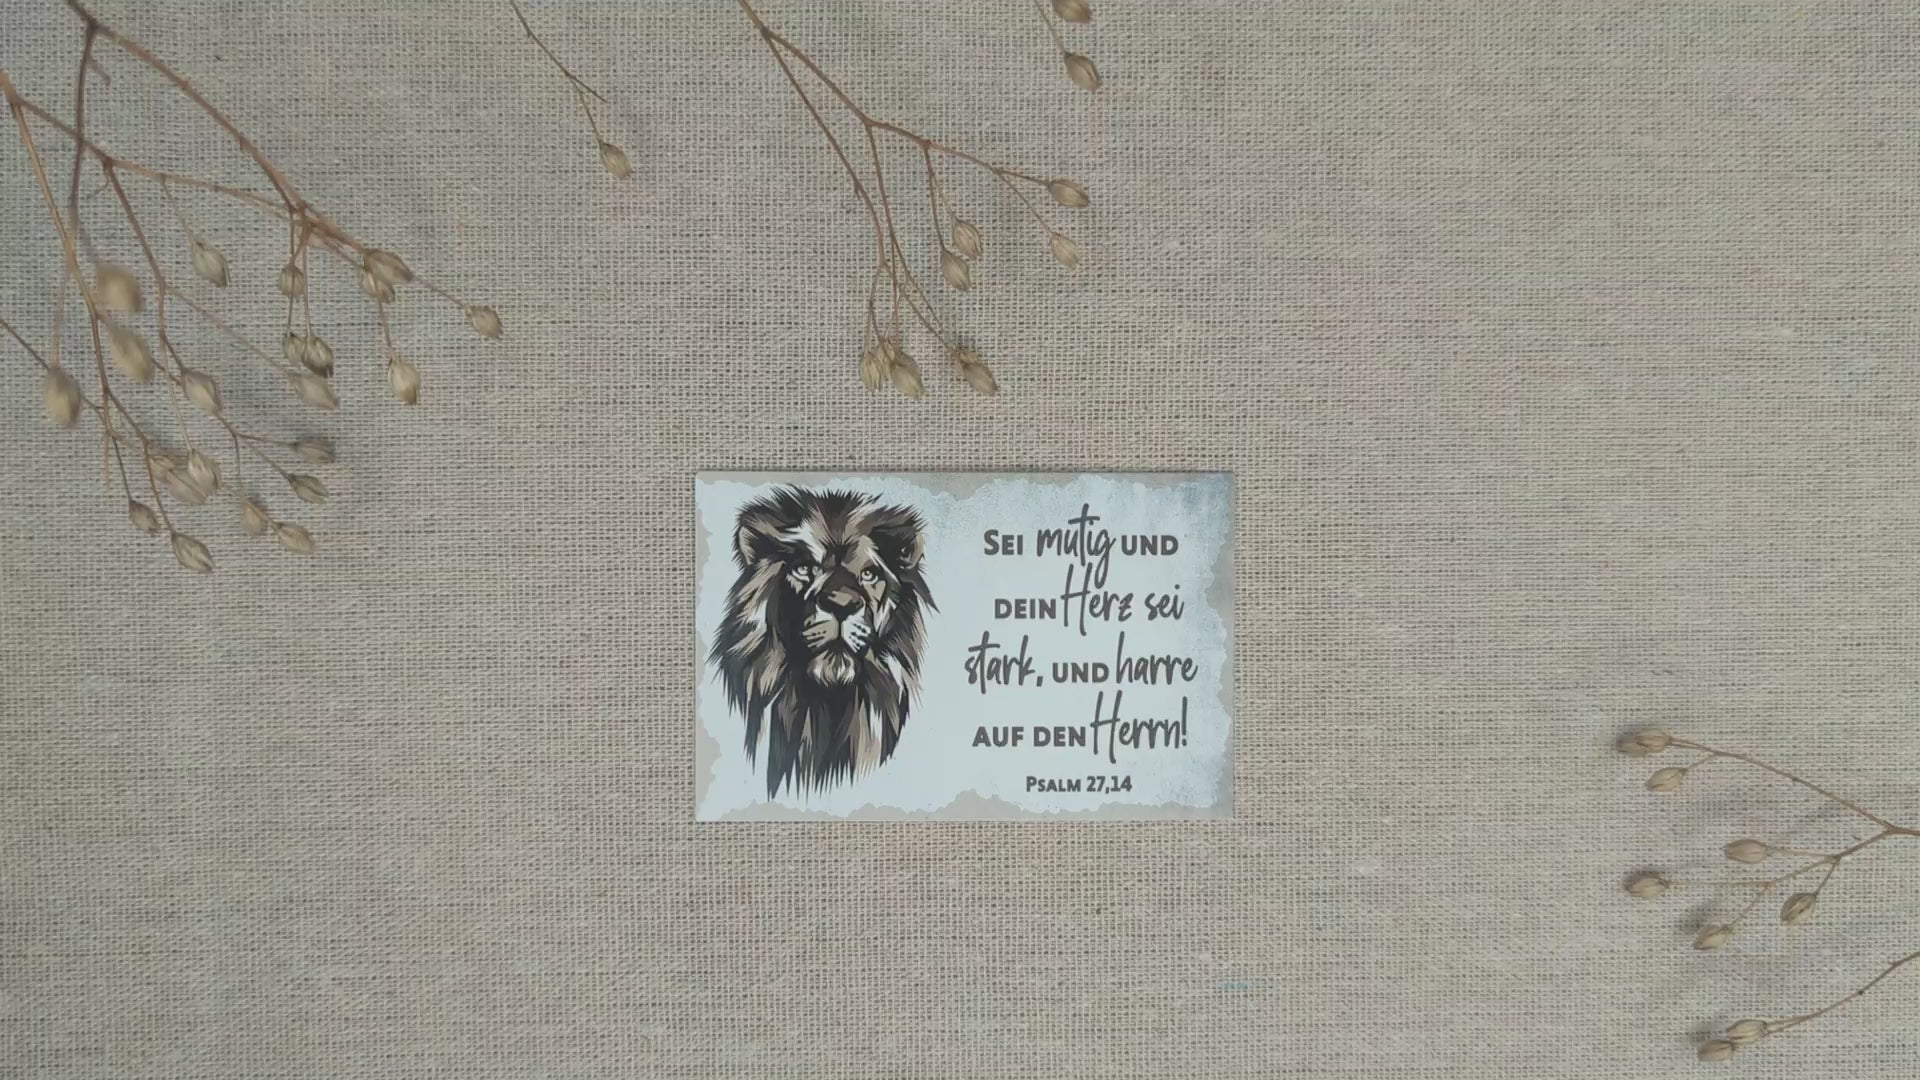 Sei mutig und
dein Herz sei
stark, und harre
auf den Herrn!
Psalm 27,14